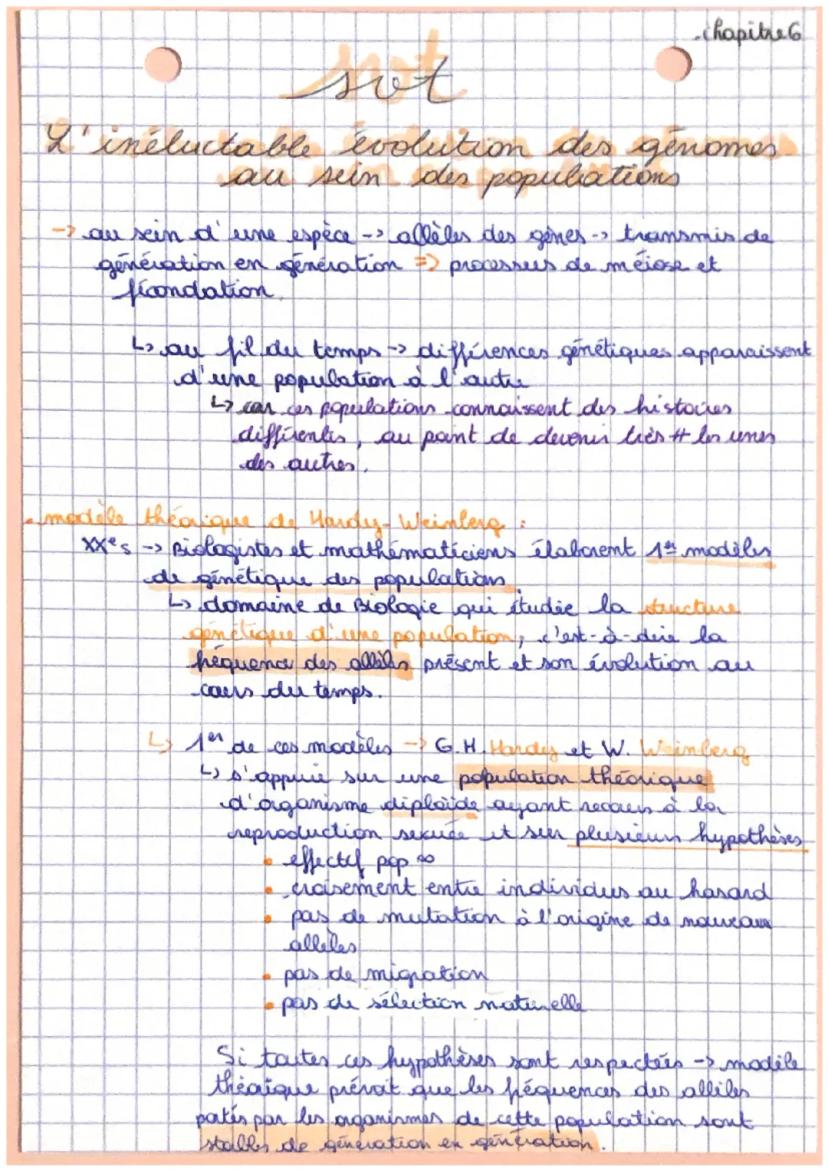 chapitre 6
svt
L'inéluctable évolution des génomes
au sein des populations
-> au sein d'une espèce -> allèles des gènes -> transmis de
génération en génération => processus de méiose et
fécondation.
↳ au fil du temps -> différences génétiques apparaissent
d'une population à l'autre
↳ car ces populations connaissent des histoires
différentes, au point de devenir très ≠ les unes
des autres.
. modèle théorique de Hardy-Weinberg :
XXe s -> Biologistes et mathématiciens élaborent 1er modèles
de génétique des populations.
↳ domaine de Biologie qui étudie la structure
génétique d'une population, c'est-à-dire la
fréquence des allèles présent et son évolution au
cours du temps.
↳ 1er de ces modèles -> G.H. Hardy et W. Weinberg
↳ s'appuie sur une population théorique
d'organisme diploïde ayant recours à la
reproduction sexuée et sur plusieurs hypothèses
• effectif pop ∞
• croisement entre individus au hasard
• pas de mutation à l'origine de nouveaux
allèles
• pas de migration
• pas de sélection naturelle
Si toutes ces hypothèses sont respectées -> modèle
théorique prévoit que les fréquences des allèles
portés par les organismes de cette population sont
stables de génération en génération.